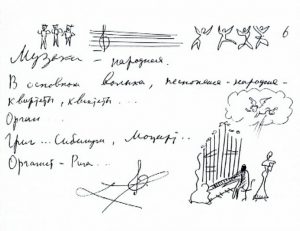 6
Музыка – народная.
В основном волынка, народная-
квартеты, квинтеты...
Орган...
Григ... Сибелиус, Моцарт..
Органист – Рига...